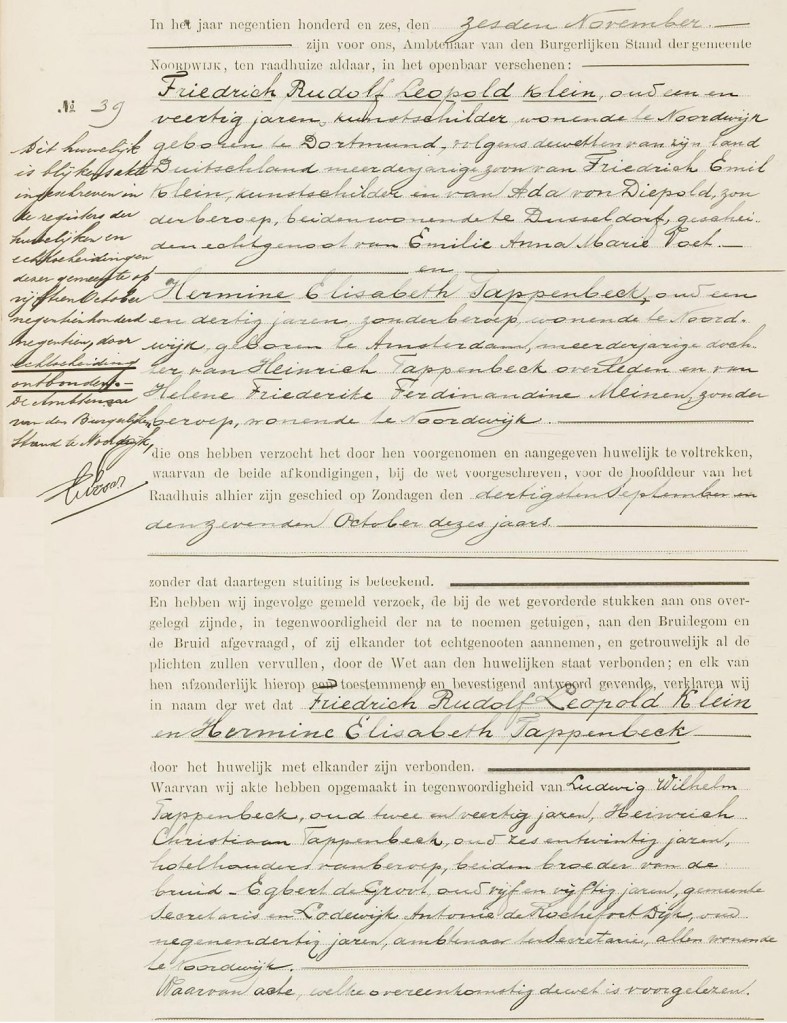 In het jaar negentien honderd en zes, den zesden November.
zijn voor ons, Ambtenaar van den Burgerlijken Stand der gemeente
NOORDWIJK, ten raadhuize aldaar, in het openbaar verschenen:
Friedrich Rudolf Leopold Klein, oud een en
veertig jaren, kunstschilder wonende te Noordwijk
geboren te Dortmund, volgens de wetten van zijn land
Duitschland meerderjarige zoon van Friedrich Emil
Klein, kunstschilder en van Ada von Diepold, zon
der beroep, beiden wonende te Dusseldorf, geschei-
den echtgenoot van Emilie Anna Marie Voet.
en
Hermine Elisabeth Tappenbeck, oud een
en dertig jaren zonder beroep, wonende te Noord-
wijk, geboren te Amsterdam, meerderjarige doch
ter van Heinrich Tappenbeck overleden en van
Helene Friederike Ferdinandine Meinen, zonder
beroep, wonende te Noordwijk.
No 39
Dit huwelijk
is blijkens akte
ingeschreven in
de registers der
huwelijken en
echtscheidingen
dezer gemeente op
vijftien October
negentienhonderd
negentien, door
echtscheiding
ontbonden.
De Ambtenaar
van den Burgerlijken
Stand te Noordwijk,
die ons hebben verzocht het door hen voorgenomen en aangegeven huwelijk te voltrekken,
waarvan de beide afkondigingen, bij de wet voorgeschreven, voor de hoofddeur van het
Raadhuis alhier zijn geschied op Zondagen den dertigsten September en
den zevenden October dezes jaars.
zonder dat daartegen stuiting is beteekend.
En hebben wij ingevolge gemeld verzoek, de bij de wet gevorderde stukken aan ons over-
gelegd zijnde, in tegenwoordigheid der na te noemen getuigen, aan den Bruidegom en
de Bruid afgevraagd, of zij elkander tot echtgenooten aannemen, en getrouwelijk al de
plichten zullen vervullen, door de Wet aan den huwelijken staat verbonden; en elk van
hen afzonderlijk hierop een toestemmend en bevestigend antwoord gevende, verklaren wij
in naam der wet dat Friedrich Rudolf Leopold Klein
en Hermine Elisabeth Tappenbeck
door het huwelijk met elkander zijn verbonden.
Waarvan wij akte hebben opgemaakt in tegenwoordigheid van Ludwig Wilhelm
Tappenbeck, oud twee en veertig jaren, Heinrich
Christiaan Tappenbeck, oud zes en twintig jaren,
hotelhouders van beroep, beiden broeder van de
bruid - Egbert de Groot, oud vijf en vijftig jaren, gemeente
secretaris en Lodewijk Antonie de Rochefort Dijk, oud
negenendertig jaren, ambtenaar ter Secretarie, allen wonende
te Noordwijk.
Waarvan acte, welke overeenkomstig de wet is voorgelezen.